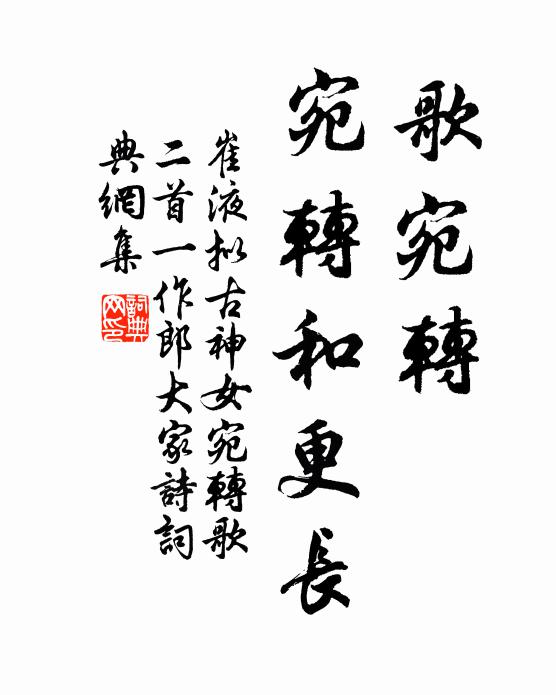 歌宛轉
宛轉和更長
崔液拟古神女宛轉歌
二首一作郎大家詩詞
典網集
詞典
网印